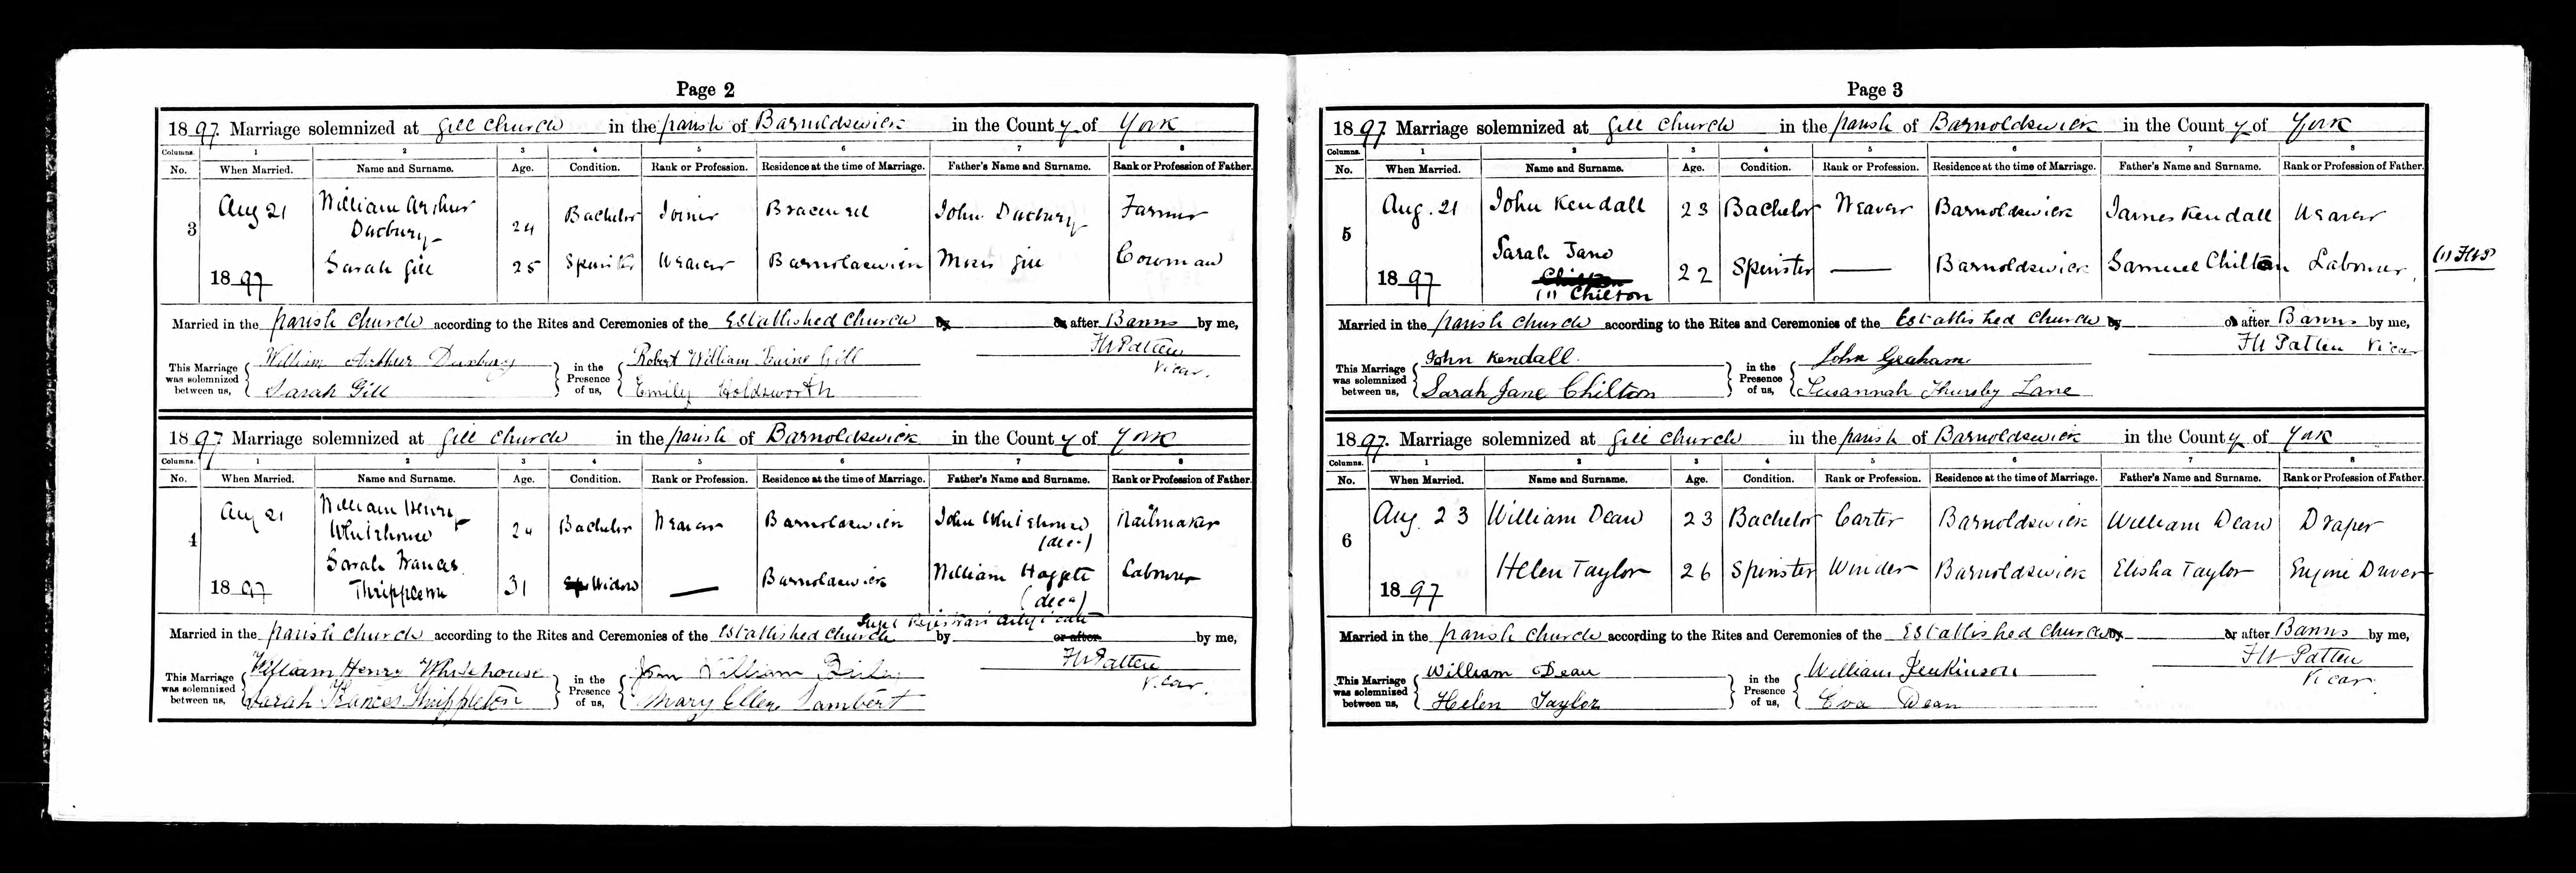 Page 2
1897. Marriage solemnized at Gill Church in the parish of Barnoldswick in the County of York
Columns. 1 2 3 4 5 6 7 8
No. When Married. Name and Surname. Age. Condition. Rank or Profession. Residence at the time of Marriage. Father's Name and Surname. Rank or Profession of Father.
3 Aug 21 William Arthur Duxbury 24 Bachelor Joiner Bracewell John Duxbury Farmer
1897 Sarah Gill 25 Spinster Weaver Barnoldswick Moses Gill Cowman
Married in the parish Church according to the Rites and Ceremonies of the Established Church by or after Banns by me,
This Marriage was solemnized between us, William Arthur Duxbury in the Presence of us, Robert William Gill FW Patten
Sarah Gill Emily Holdsworth Vicar.
1897 Marriage solemnized at Gill Church in the parish of Barnoldswick in the County of York
Columns. 1 2 3 4 5 6 7 8
No. When Married. Name and Surname. Age. Condition. Rank or Profession. Residence at the time of Marriage. Father's Name and Surname. Rank or Profession of Father.
4 Aug 21 William Henry Whitehouse 24 Bachelor Weaver Barnoldswick John Whitehouse (decd) Nailmaker
1897 Sarah Frances Thrippleton 31 Widow — Barnoldswick William (decd) Labourer
Supt Registrars Certificate
Married in the parish Church according to the Rites and Ceremonies of the Established Church by or after by me,
This Marriage was solemnized between us, William Henry Whitehouse in the Presence of us, John William FW Patten
Sarah Frances Thrippleton Mary Ellen Lambert Vicar.
Page 3
1897. Marriage solemnized at Gill Church in the parish of Barnoldswick in the County of York
Columns. 1 2 3 4 5 6 7 8
No. When Married. Name and Surname. Age. Condition. Rank or Profession. Residence at the time of Marriage. Father's Name and Surname. Rank or Profession of Father.
5 Aug. 21 John Kendall 23 Bachelor Weaver Barnoldswick James Kendall Weaver
1897 Sarah Jane (1) Chilton 22 Spinster — Barnoldswick Samuel Chilton Labourer. (1) FWP
Married in the parish Church according to the Rites and Ceremonies of the Established Church by or after Banns by me,
This Marriage was solemnized between us, John Kendall. in the Presence of us, John Graham FW Patten Vicar
Sarah Jane Chilton Susannah Thursby Lane
1897. Marriage solemnized at Gill Church in the parish of Barnoldswick in the County of York
Columns. 1 2 3 4 5 6 7 8
No. When Married. Name and Surname. Age. Condition. Rank or Profession. Residence at the time of Marriage. Father's Name and Surname. Rank or Profession of Father.
6 Aug. 23 William Dean 23 Bachelor Carter Barnoldswick William Dean Draper
1897 Helen Taylor 26 Spinster Winder Barnoldswick Elisha Taylor Engine Driver
Married in the parish Church according to the Rites and Ceremonies of the Established Church by or after Banns by me,
This Marriage was solemnized between us, William Dean in the Presence of us, William Jenkinson FW Patten
Helen Taylor Eva Dean Vicar.